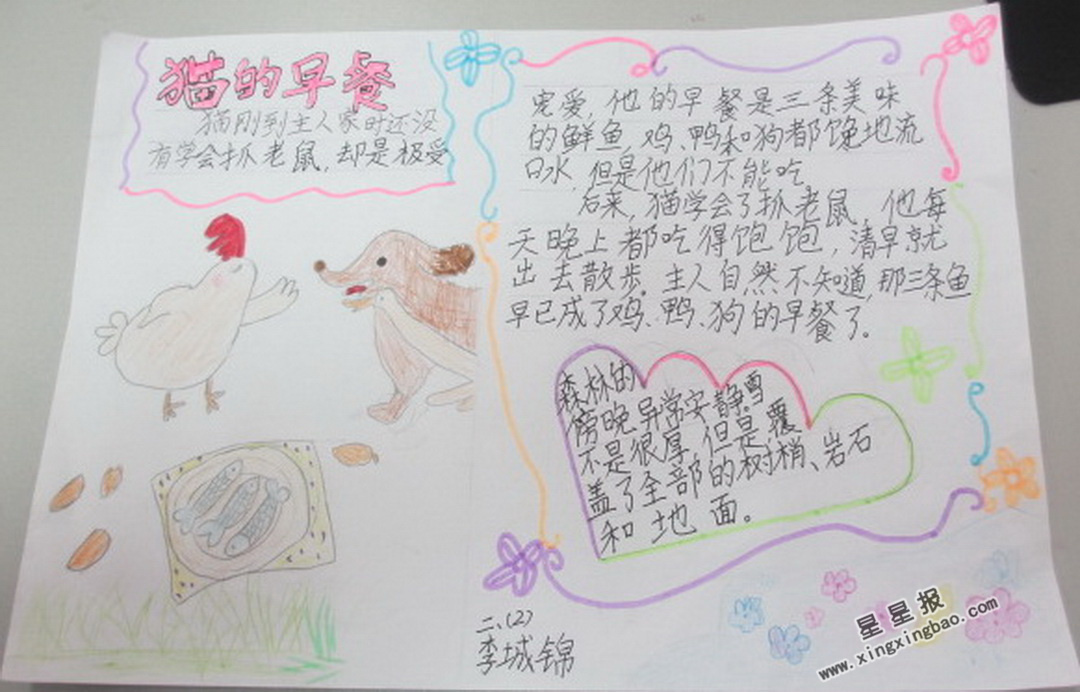 猫的早餐
猫刚到主人家时还没
有学会抓老鼠，却是极受
宠爱，他的早餐是三条美味
的鲜鱼，鸡、鸭和狗都馋地流
口水，但是他们不能吃。
后来，猫学会了抓老鼠，他每
天晚上都吃得饱饱，清早就
出去散步。主人自然不知道，那三条鱼
早已成了鸡、鸭、狗的早餐了。
森林的
傍晚异常安静。雪
不是很厚，但是覆
盖了全部的树梢、岩石
和地面。
二、(2)
李城锦
星星报
www.xingxingbao.com